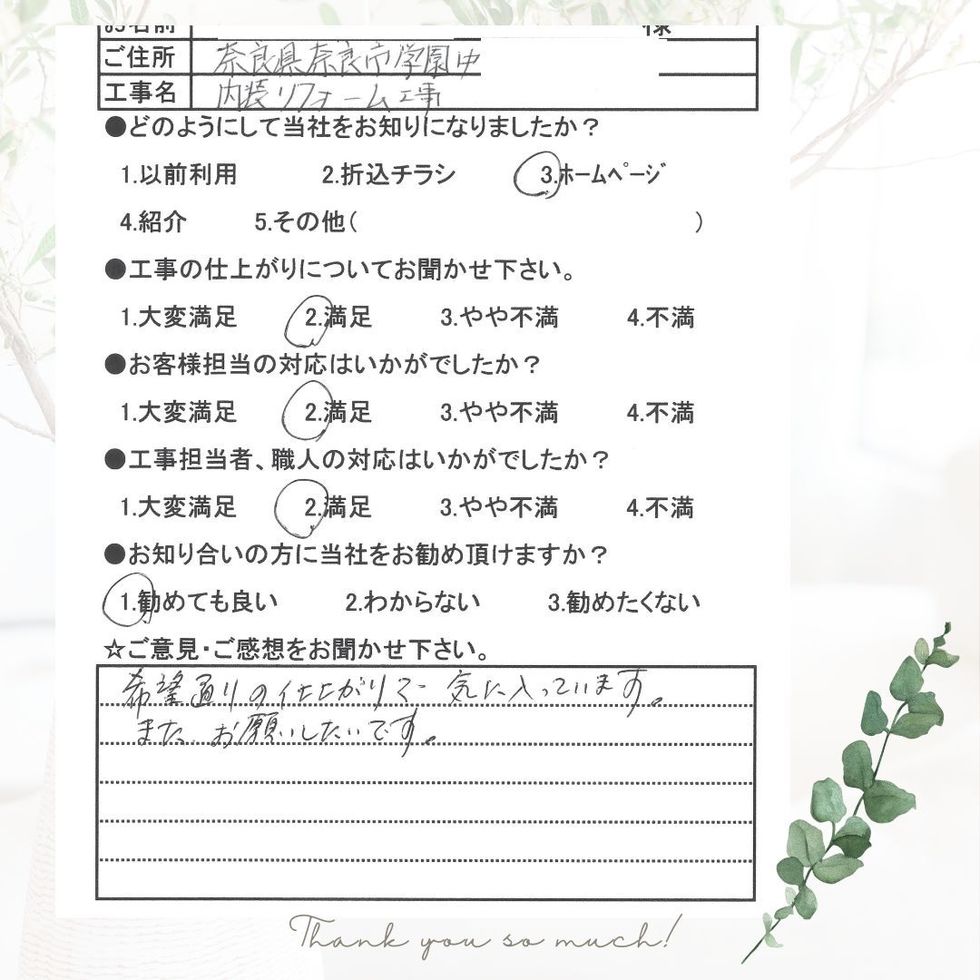 お名前 様
ご住所 奈良県奈良市学園中
工事名 内装リフォーム工事
●どのようにして当社をお知りになりましたか？
1.以前利用 2.折込チラシ 3.ﾎｰﾑﾍﾟｰｼﾞ
4.紹介 5.その他( )
●工事の仕上がりについてお聞かせ下さい。
1.大変満足 2.満足 3.やや不満 4.不満
●お客様担当の対応はいかがでしたか？
1.大変満足 2.満足 3.やや不満 4.不満
●工事担当者、職人の対応はいかがでしたか？
1.大変満足 2.満足 3.やや不満 4.不満
●お知り合いの方に当社をお勧め頂けますか？
1.勧めても良い 2.わからない 3.勧めたくない
☆ご意見・ご感想をお聞かせ下さい。
希望通りの仕上がりで 気に入っています。
また、お願いしたいです。
Thank you so much!